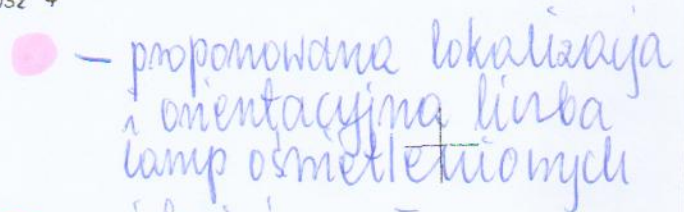 – proponowana lokalizacja
i orientacyjna liczba
lamp oświetleniowych